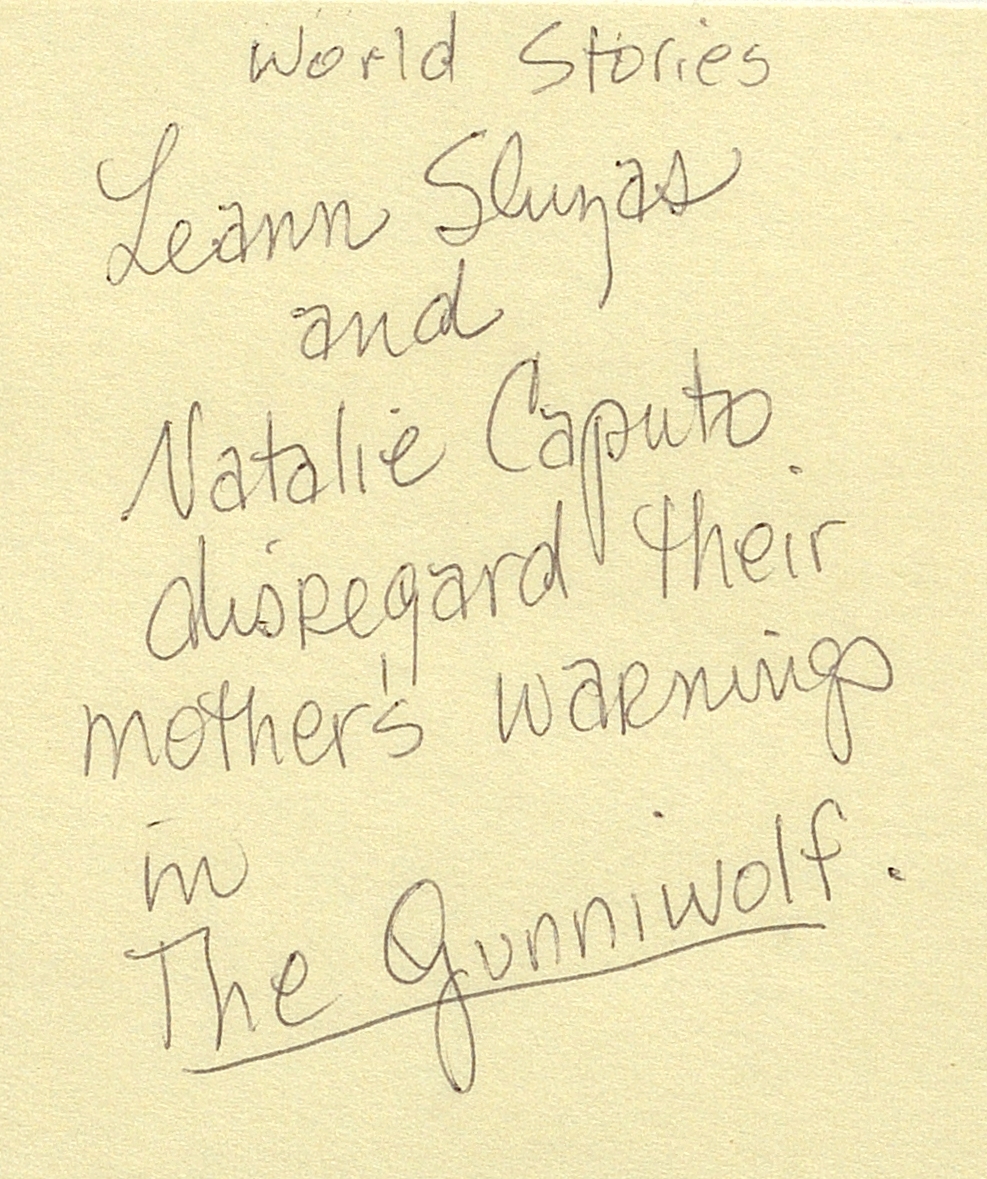 World Stories
Leann Sluzas
and
Natalie Caputo
disregard their
mother's warnings
in
The Gunniwolf.